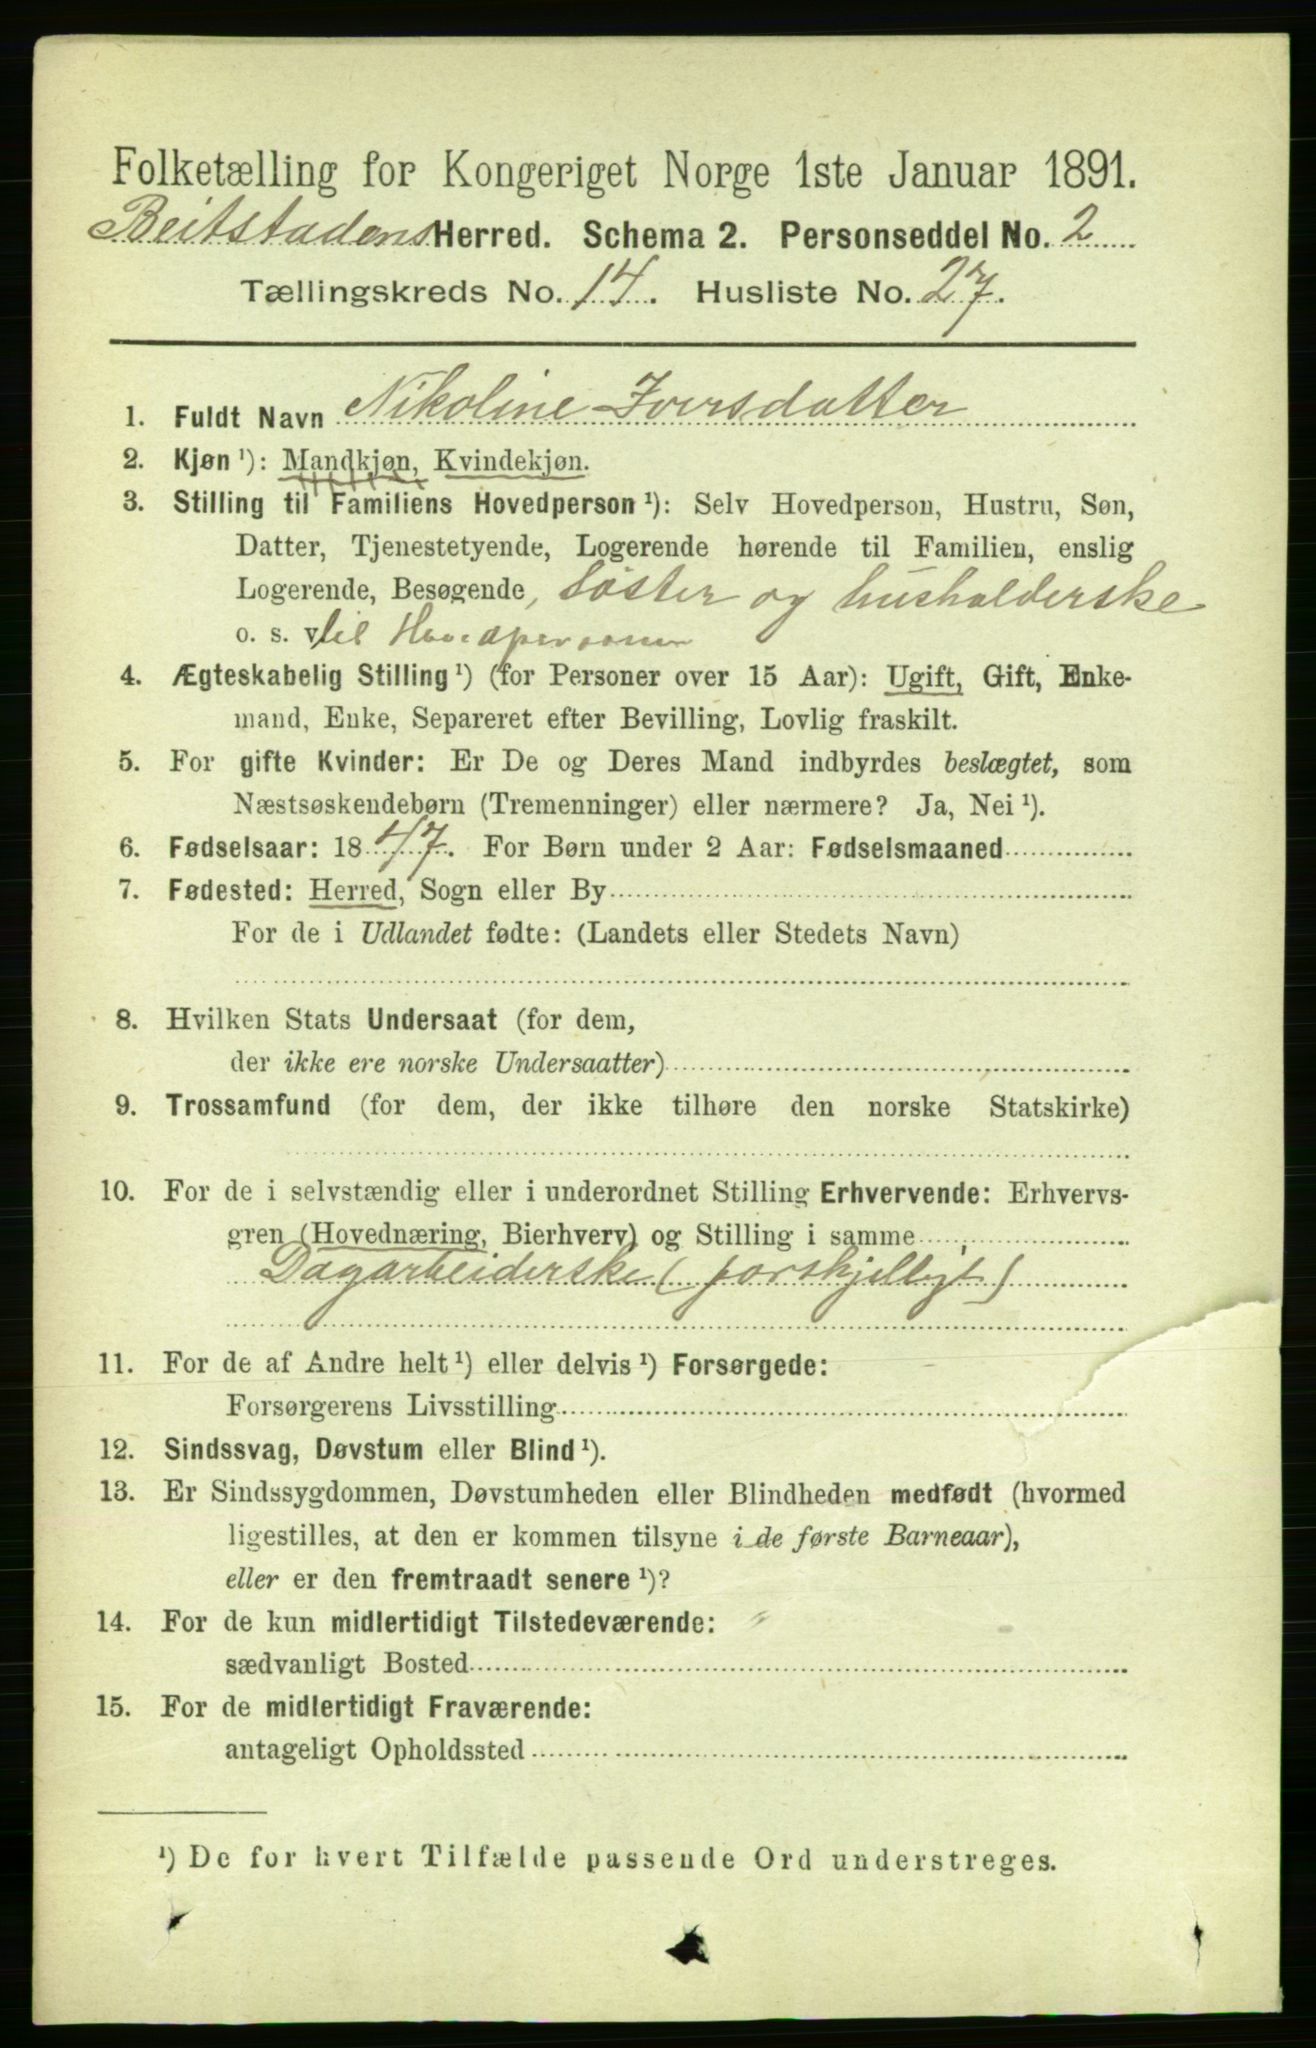 Folketælling for Kongeriget Norge 1ste Januar 1891.
Beitstadens Herred. Schema 2. Personseddel No. 2
Tællingskreds No. 14. Husliste No. 27.
1. Fuldt Navn Nikoline Iversdatter
2. Kjøn ¹): Mandkjøn, Kvindekjøn.
3. Stilling til Familiens Hovedperson ¹): Selv Hovedperson, Hustru, Søn,
Datter, Tjenestetyende, Logerende hørende til Familien, enslig
Logerende, Besøgende, Søster og husholderske
o. s. v. til Hovedpersonen
4. Ægteskabelig Stilling ¹) (for Personer over 15 Aar): Ugift, Gift, Enke-
mand, Enke, Separeret efter Bevilling, Lovlig fraskilt.
5. For gifte Kvinder: Er De og Deres Mand indbyrdes beslægtet, som
Næstsøskendebørn (Tremenninger) eller nærmere? Ja, Nei ¹).
6. Fødselsaar: 1847. For Børn under 2 Aar: Fødselsmaaned
7. Fødested: Herred, Sogn eller By
For de i Udlandet fødte: (Landets eller Stedets Navn)
8. Hvilken Stats Undersaat (for dem,
der ikke ere norske Undersaatter)
9. Trossamfund (for dem, der ikke tilhøre den norske Statskirke)
10. For de i selvstændig eller i underordnet Stilling Erhvervende: Erhvervs-
gren (Hovednæring, Bierhverv) og Stilling i samme
Dagarbeiderske (forskjelligt)
11. For de af Andre helt ¹) eller delvis ¹) Forsørgede:
Forsørgerens Livsstilling
12. Sindssvag, Døvstum eller Blind ¹).
13. Er Sindssygdommen, Døvstumheden eller Blindheden medfødt (hvormed
ligestilles, at den er kommen tilsyne i de første Barneaar),
eller er den fremtraadt senere ¹)?
14. For de kun midlertidigt Tilstedeværende:
sædvanligt Bosted
15. For de midlertidigt Fraværende:
antageligt Opholdssted
¹) De for hvert Tilfælde passende Ord understreges.